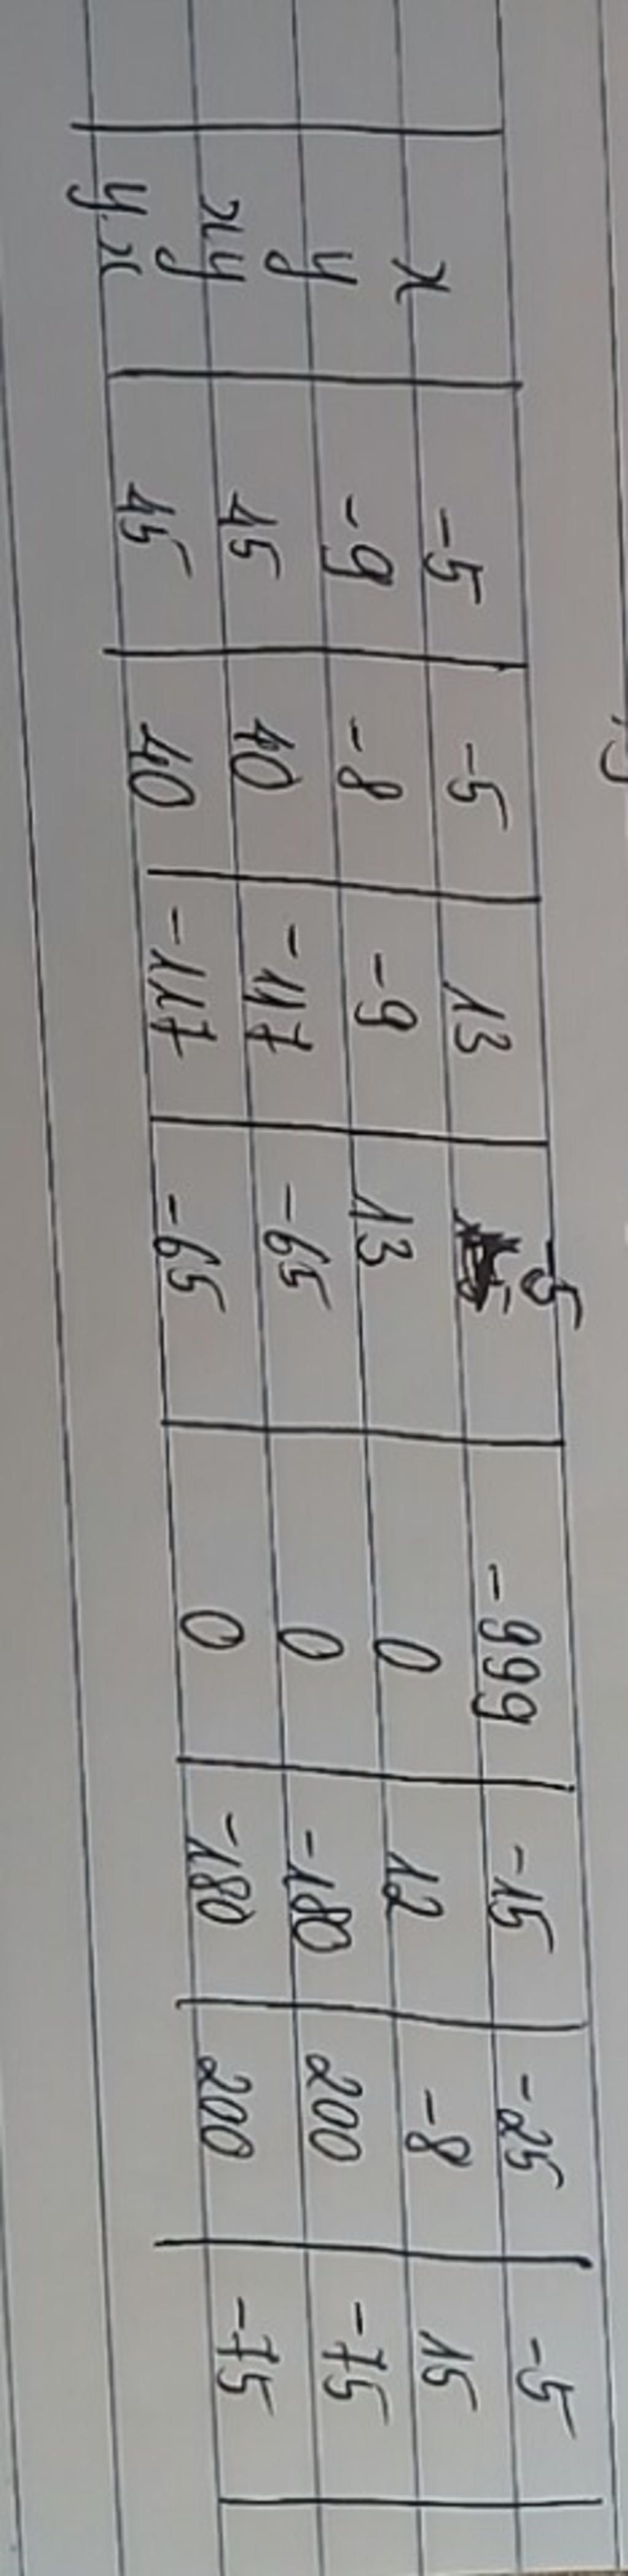 x -5 -5 13 -5 -999 -15 -25 -5
y -9 -8 -9 13 0 12 -8 15
xy 45 40 -117 -65 0 -180 200 -75
y.x 45 40 -117 -65 0 -180 200 -75